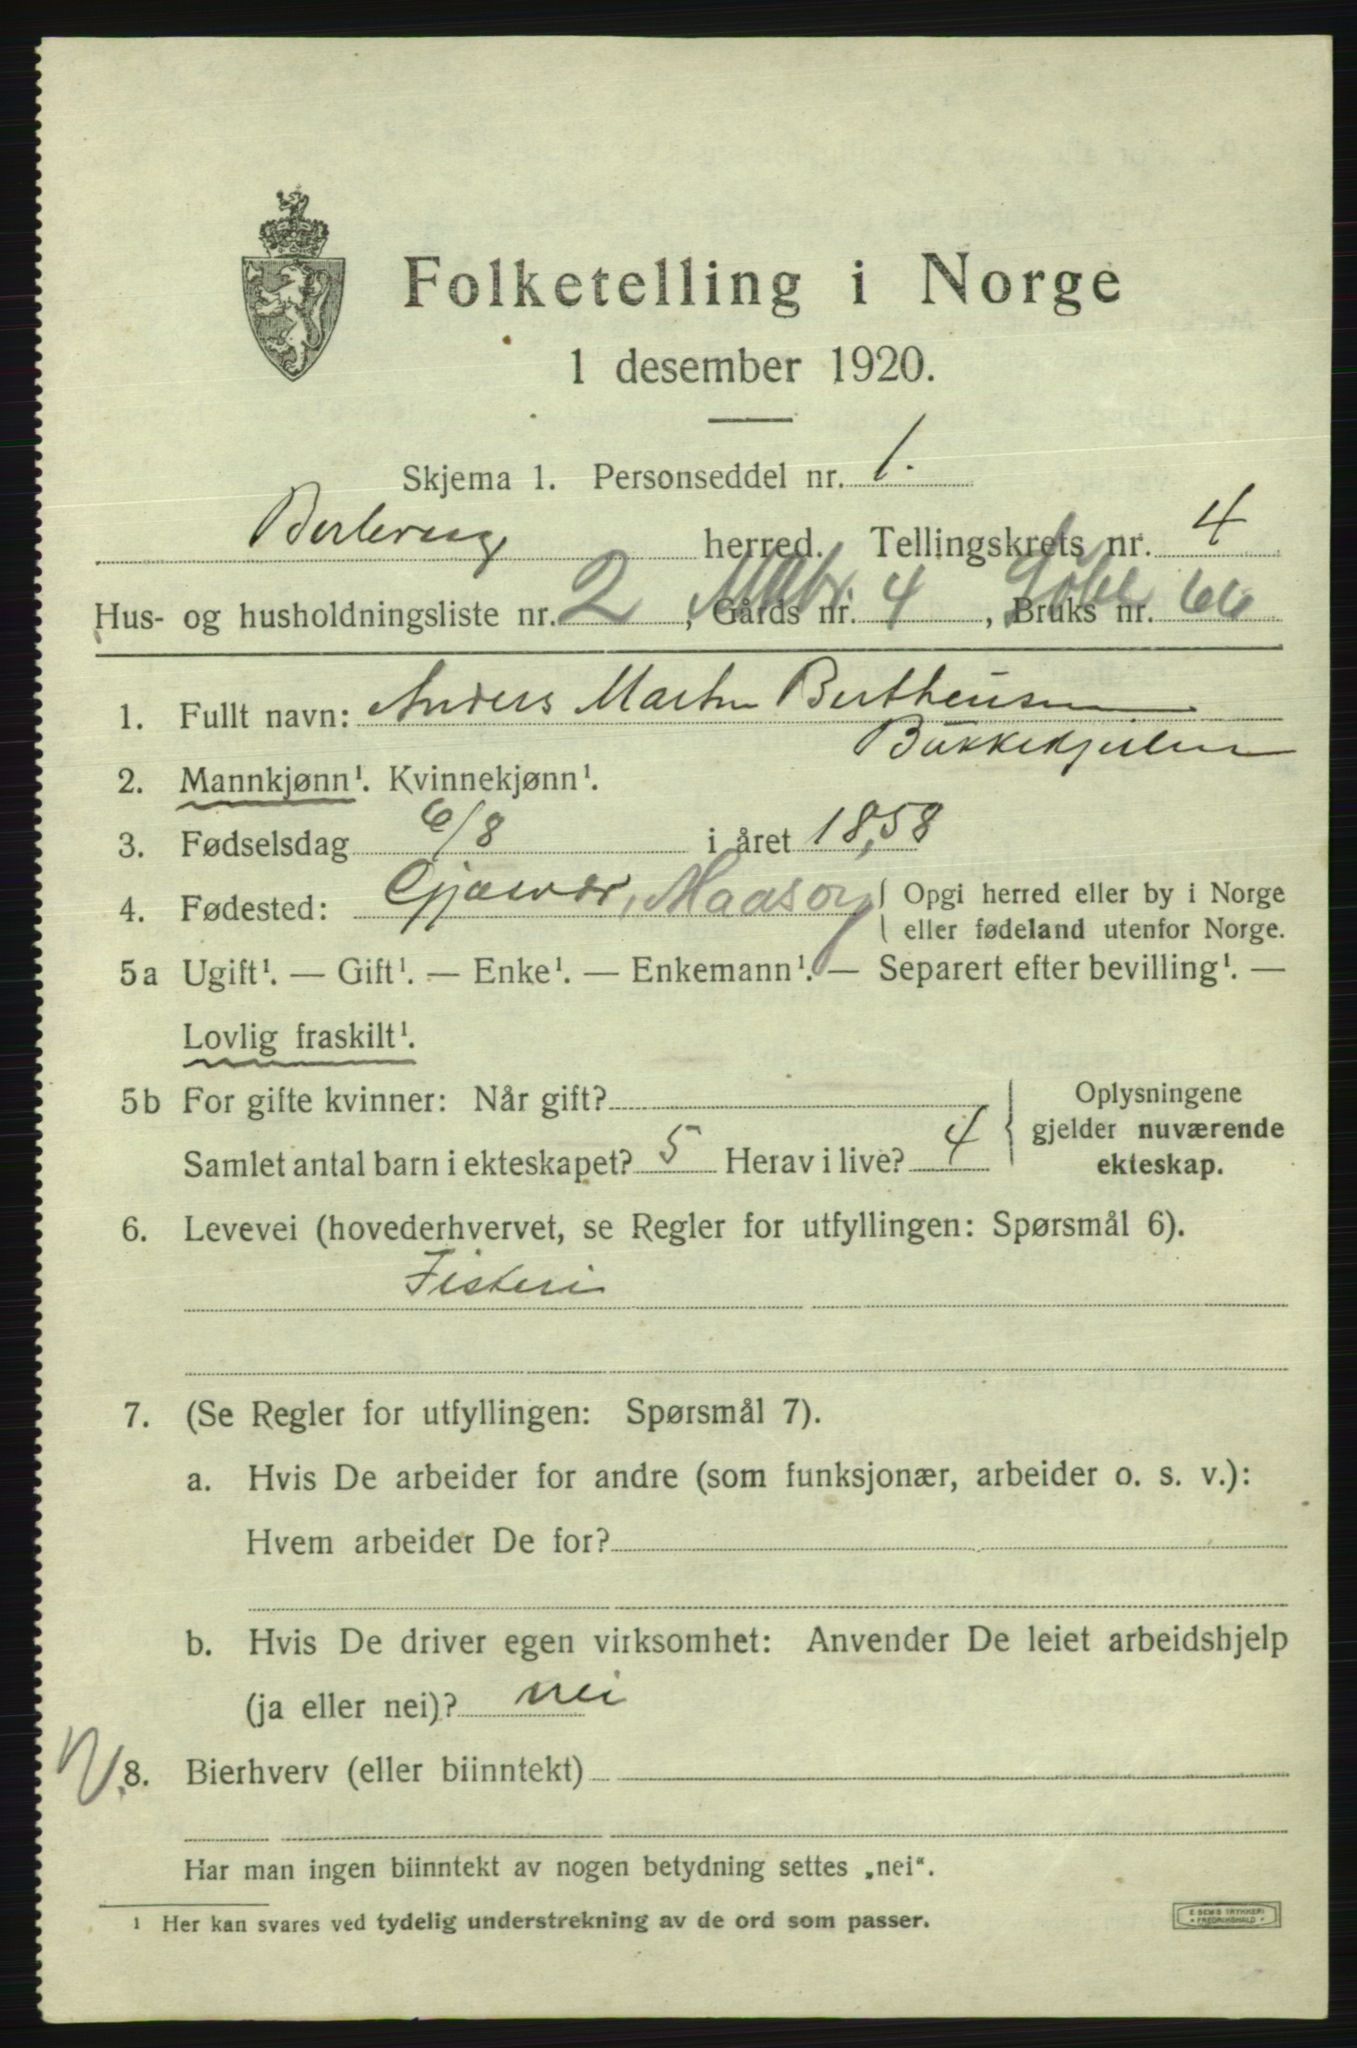 Folketelling i Norge
1 desember 1920.
Skjema 1. Personseddel nr. 1.
Berlevaag herred. Tellingskrets nr. 4
Hus- og husholdningsliste nr. 2, Gårds nr. 4, Bruks nr. 66
1. Fullt navn: Anders Martin Bertheusen
Bakkekjeilen
2. Mannkjønn¹. Kvinnekjønn¹.
3. Fødselsdag 6/8 i året 1858
4. Fødested: Gjæsvær, Maasøy { Opgi herred eller by i Norge
eller fødeland utenfor Norge.
5a Ugift¹. — Gift¹. — Enke¹. — Enkemann¹. — Separert efter bevilling¹. —
Lovlig fraskilt¹.
5b For gifte kvinner: Når gift?
Samlet antal barn i ekteskapet? 5 Herav i live? 4
{ Oplysningene
gjelder nuværende
ekteskap.
6. Levevei (hovederhvervet, se Regler for utfyllingen: Spørsmål 6).
Fiskeri
7. (Se Regler for utfyllingen: Spørsmål 7).
a. Hvis De arbeider for andre (som funksjonær, arbeider o. s. v.):
Hvem arbeider De for?
b. Hvis De driver egen virksomhet: Anvender De leiet arbeidshjelp
(ja eller nei)? nei
8. Bierhverv (eller biinntekt)
Har man ingen biinntekt av nogen betydning settes „nei“.
¹ Her kan svares ved tydelig understrekning av de ord som passer.
E. SEMS TRYKKERI
• FREDRIKSHALD •